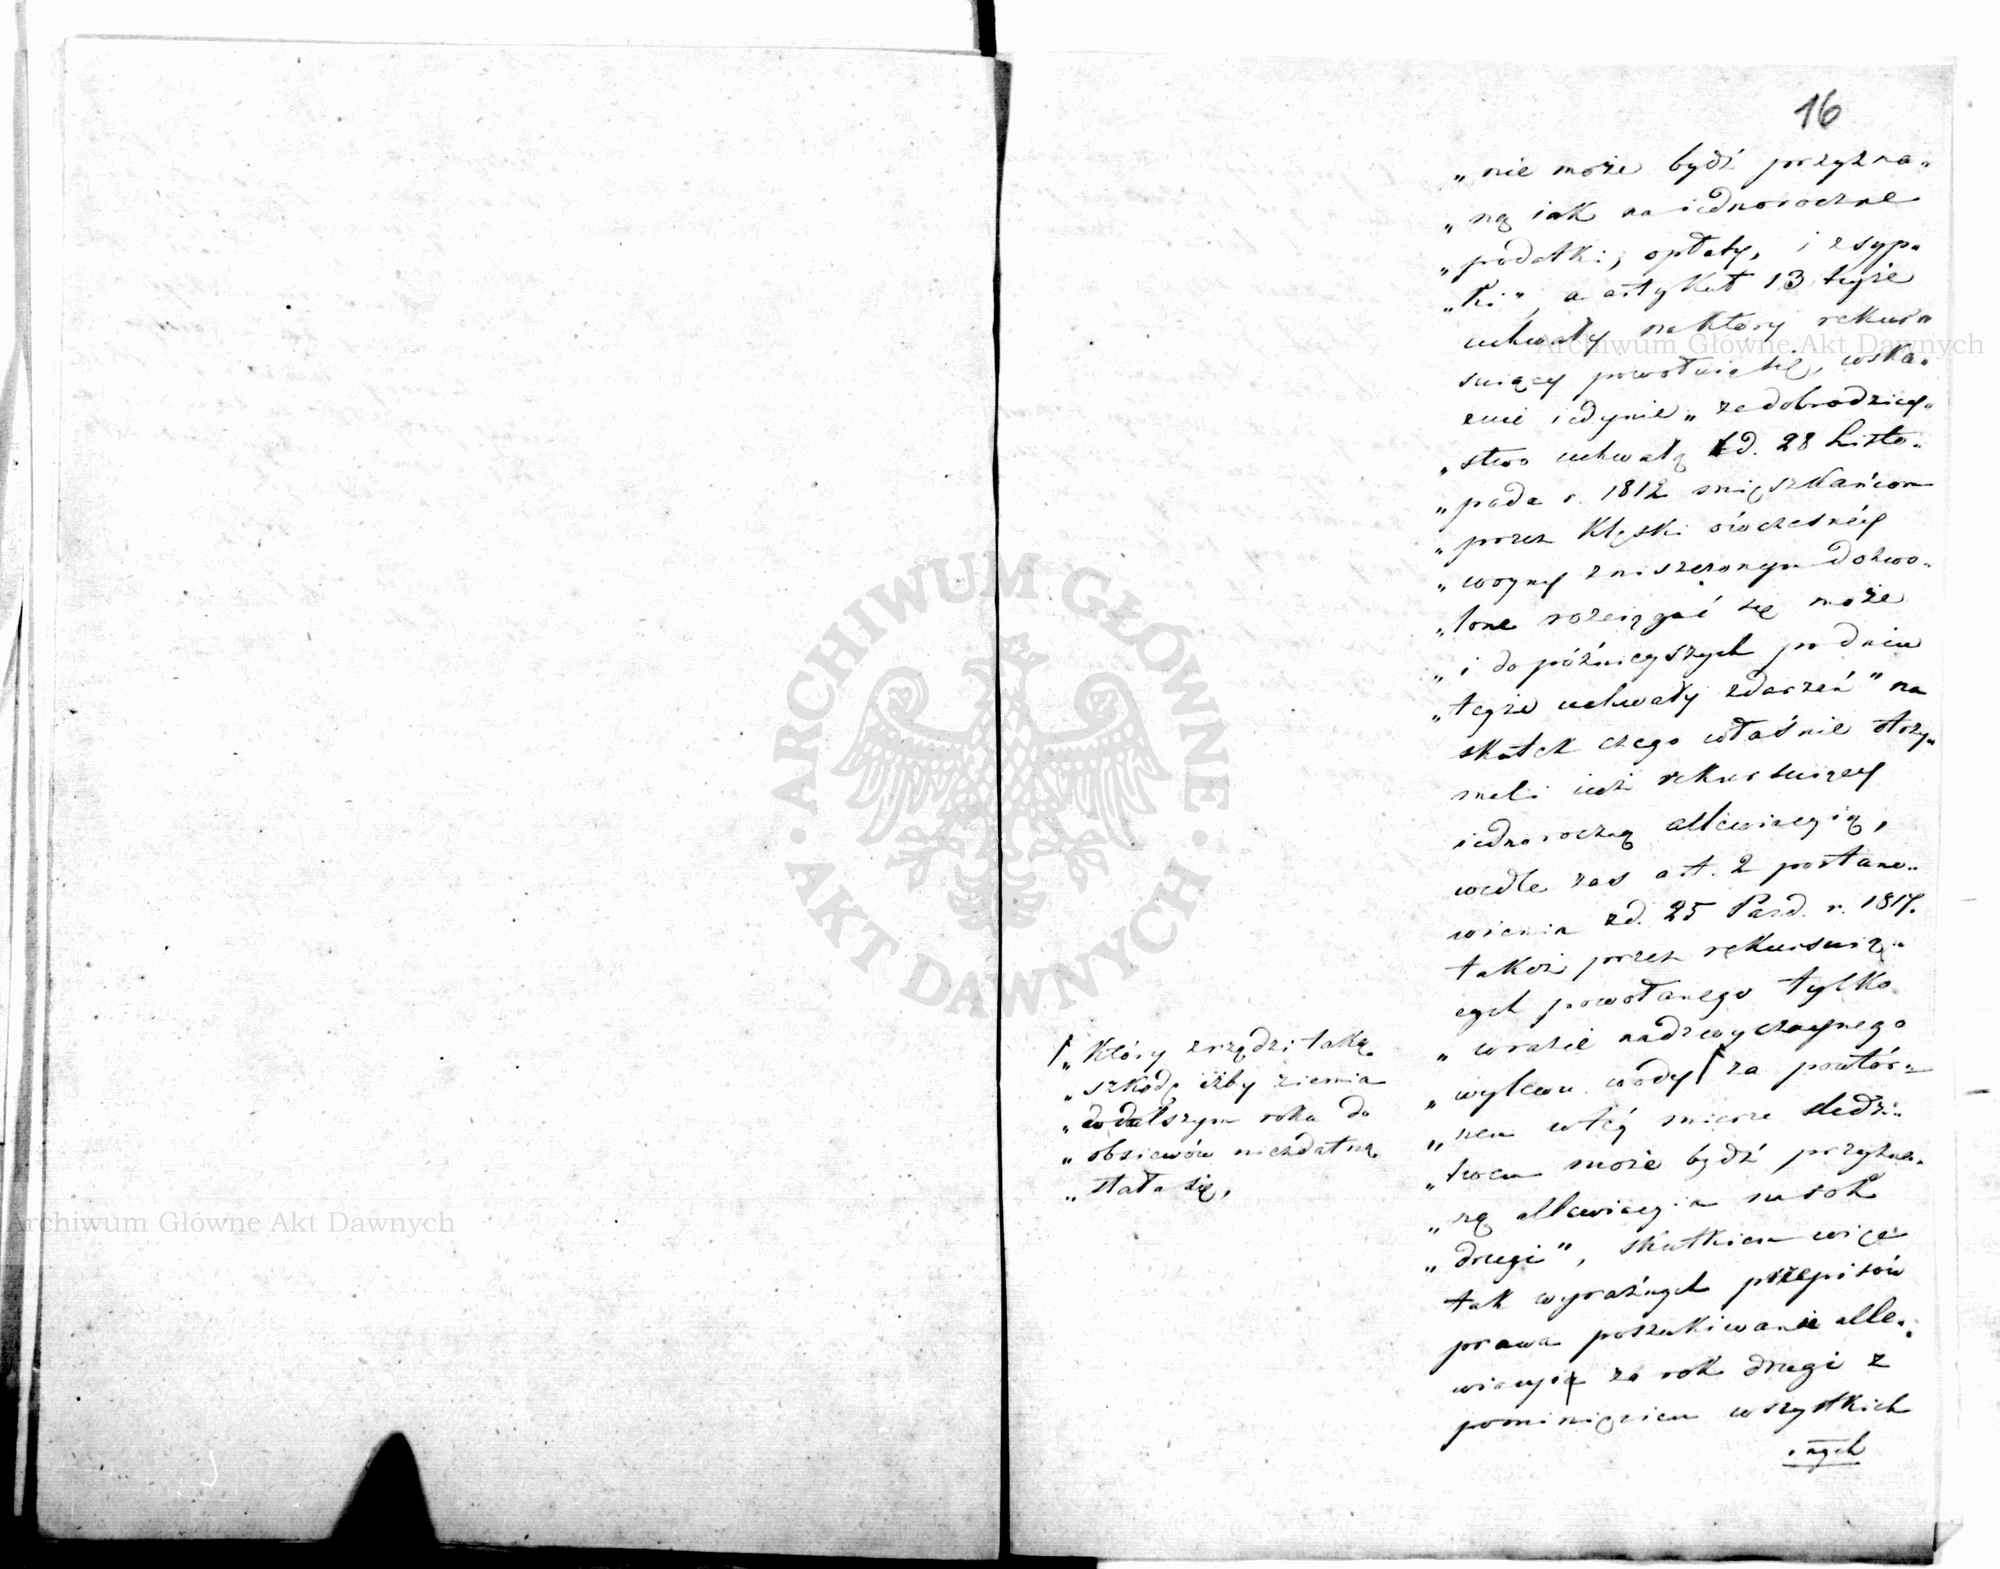 16
„nie może bydź przyzna„
„ną iak na iednoroczne
„podatki, opłaty, i zsyp„
„ki", a artykuł 13 teyże
uchwały na który rekur„
suiący powołuią się, wska„
zuie iedynie „że dobrodziey„
„stwo uchwałą zd. 28 Listo„
„pada r. 1812 mięszkańcom
„przez klęski ówczesnéy
„woyny zniszczonym dozwo„
„lone rozciągać się może
„i do póżnieyszych po dniu
„teyże uchwały zdarzeń" na
skutek czego właśnie otrzy„
mali iuż rekursuiący
iednoroczną allewiacyią,
wedle zas art. 2 postano„
wienia zd. 25 Pazd. r. 1817.
takoż przez rekursuią„
cych powołanego tylko
„wrazie nadzwyczaynego
„wylewu wody / za powtór„
„nem wtéy mierze śledz„
„twem może bydź przyzna„
„ną allewiacyia na rok
„drugi", skutkiem więc
tak wyraźnych przepisów
prawa poszukiwanie alle„
wiacyi za rok drugi z
pominięciem wszystkich
innych
/ „Który zrządzi taką
„szkodę iżby ziemia
„w dalszym roku do
„obsiewów niezdatną
„stała się,
Archiwum Główne Akt Dawnych
Archiwum Główne Akt Dawnych
ARCHIWUM GŁÓWNE · AKT DAWNYCH ·